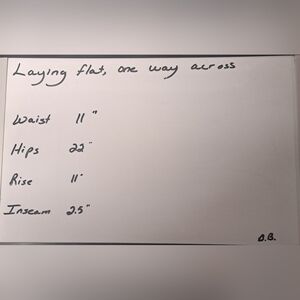 Laying flat, one way across
Waist 11"
Hips 22"
Rise 11"
Inseam 2.5"
D.B.